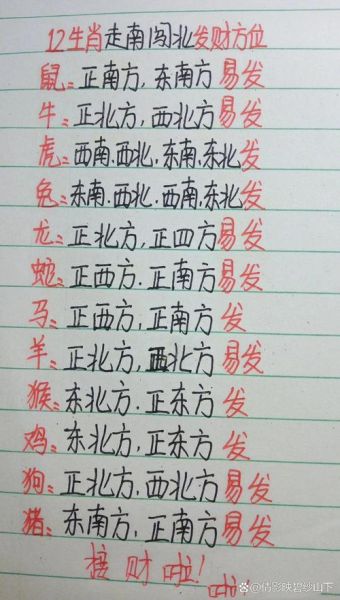 12生肖走南闯北发财方位
鼠:正南方,东南方易发
牛:正北方,西北方易发
虎:西南.西北.东南.东北发
兔:东南.西北.西南.东北发
龙:正北方,正四方易发
蛇:正西方.正南方易发
马:正西方,正南方发
羊:正北方,西北方易发
猴:东北方.正东方发
鸡:东北方,正东方发
狗:正北方,西北方易发
猪:东南方,正南方易发
接财啦!
啦!
@倩影映碧纱山下